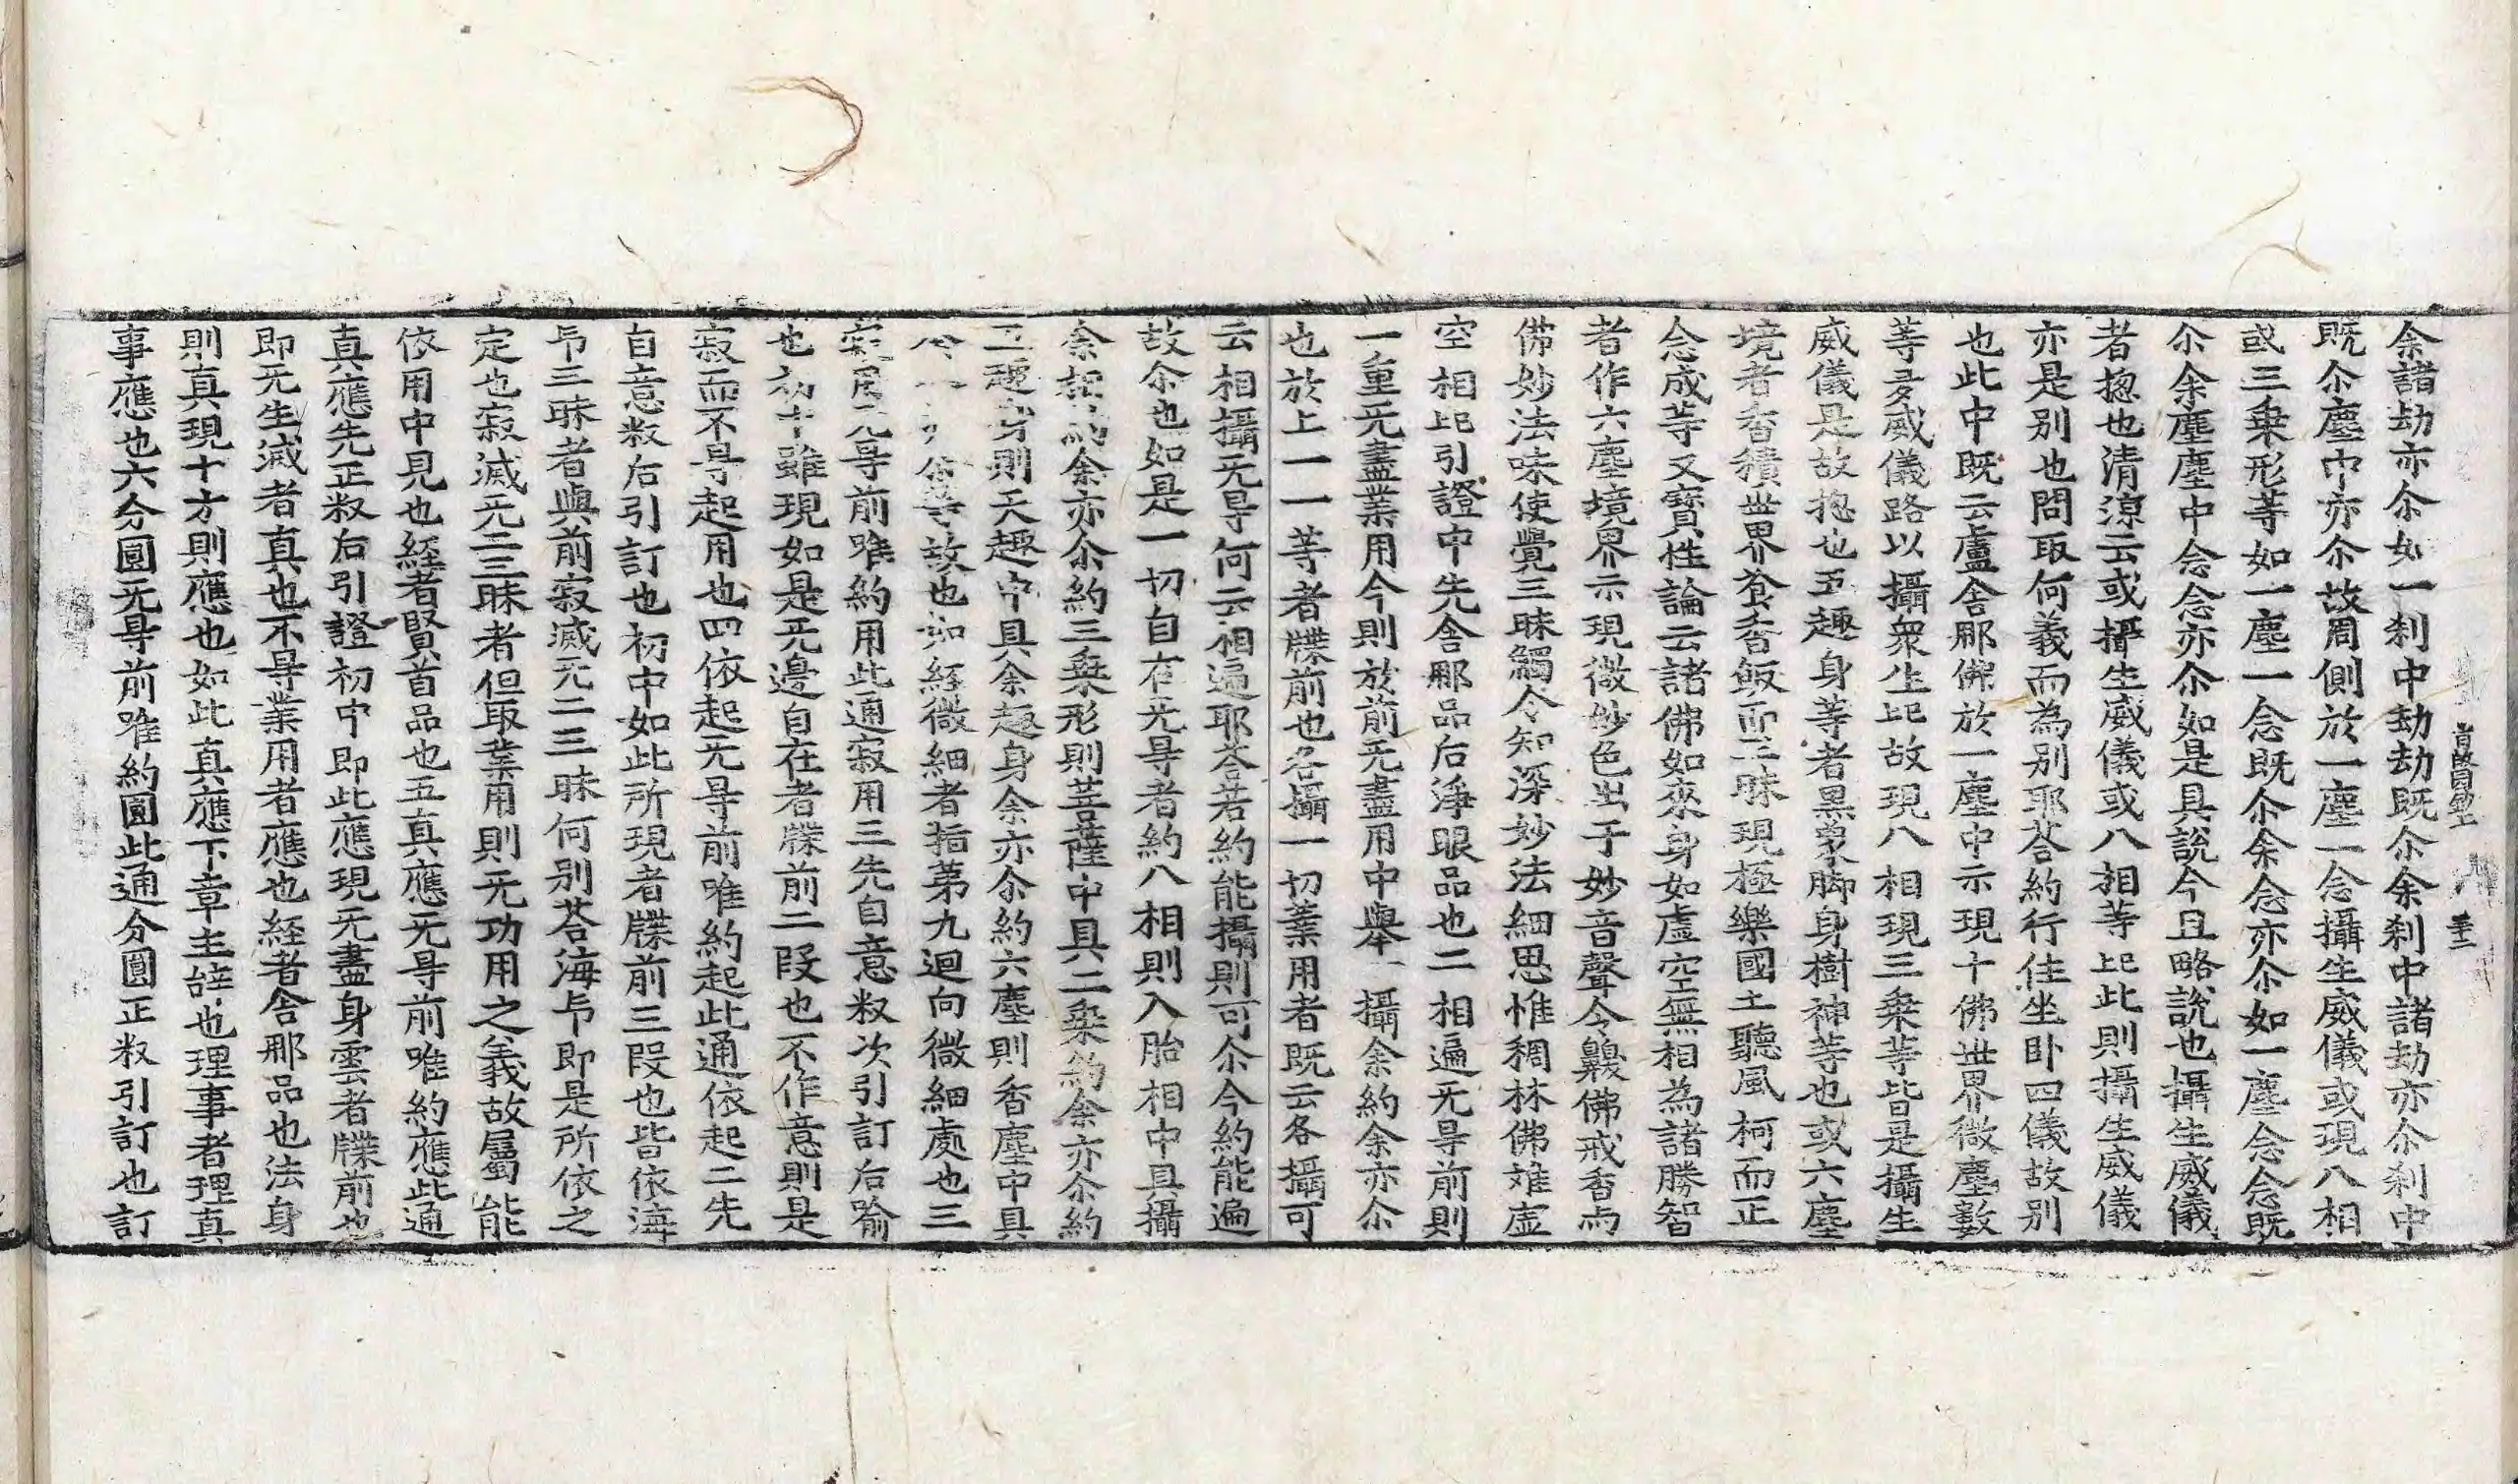 余諸劫亦尒如一刹中劫劫既尒余刹中諸劫亦尒刹中
既尒塵中亦尒故周側於一塵一念攝生威儀或現八相
或三乗形等如一塵一念既尒余念亦尒如一塵念念既
尒余塵塵中念念亦尒如是具說今且略說也攝生威儀
者揔也清涼云或攝生威儀或八相等此則攝生威儀
亦是别也問取何義而為别耶荅約行住坐卧四儀故别
也此中既云盧舍那佛於一塵中示現十佛世界微塵數
等多威儀路以攝衆生此故現八相現三乗等皆是攝生
威儀是故揔也五趣身等者黒象脚身樹神等也或六塵
境者香積世界飡香飯而三昧現極樂國土聽風柯而正
念成等又寳性論云諸佛如來身如虚空無相為諸勝智
者作六塵境界示現微妙色出于妙音聲令齅佛戒香与
佛妙法味使覺三昧觸令知深妙法細思惟稠林佛虽虚
空相此引證中先舍那品后淨眼品也二相遍无㝵前則
一重无盡業用今則於前无盡用中舉一攝余約余亦尒
也於上一一等者牒前也各攝一切業用者既云各攝可
云相攝无㝵何云相遍耶荅若約能攝則可尒今約能遍
故尒也如是一切自在无㝵者約八相則入胎相中具攝
余相約余亦尒約三乗形則菩薩中具二乗約余亦尒約
五趣身則天趣中具余趣身余亦尒約六塵則香塵中具
故也如経微細者指第九迴向微細處也三
寂用无㝵前唯約用此通寂用三先自意叙次引訂后喻
也初中雖現如是无邊自在者牒前二叚也不作意則是
寂而不㝵起用也四依起无㝵前唯約起此通依起二先
自意叙后引訂也初中如此所現者牒前三叚也皆依海
卬三昧者與前寂滅无二三昧何别荅海卬即是所依之
定也寂滅无二三昧者但取業用則无功用之義故屬能
依用中見也経者賢首品也五真應无㝵前唯約應此通
真應先正叙后引證初中即此應現无盡身雲者牒前也
即无生滅者真也不㝵業用者應也経者舍那品也法身
則真現十方則應也如此真應下章主註也理事者理真
事應也六分圓无㝵前唯約圓此通分圓正叙引訂也訂